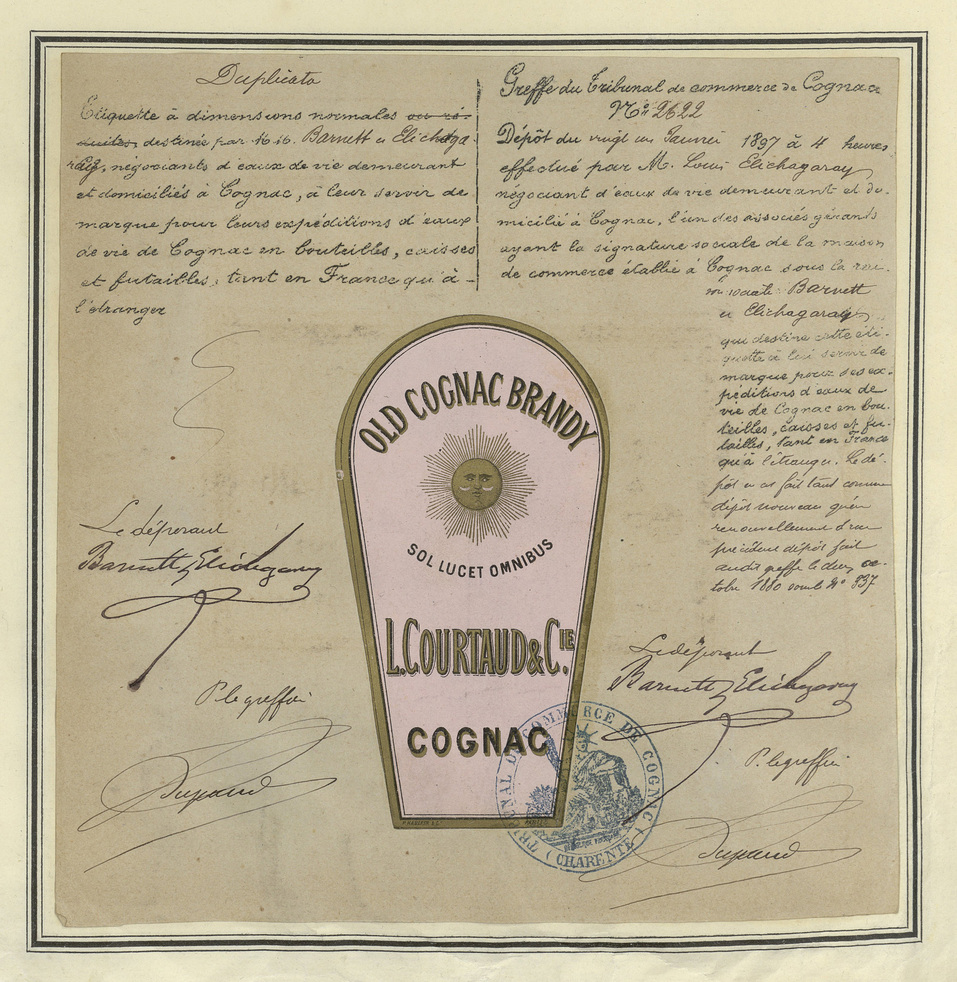 Duplicata
Etiquette à dimensions normales ou ré-
duites, destinée par M. M. Barnett & Elichaga-
ray, négociants d'eaux de vie demeurant
et domiciliés à Cognac, à leur servir de
marque pour leurs expéditions d'eaux
de vie de Cognac en bouteilles, caisses
et futailles, tant en France qu'à
l'étranger
Le déposant
Barnett & Elichagaray
P. le greffier
Dupaud
Greffe du Tribunal de commerce de Cognac
No. 2622
Dépôt du vingt un Janvier 1897 à 4 heures
effectué par M. Louis Elichagaray
négociant d'eaux de vie demeurant et do-
micilié à Cognac, l'un des associés gérants
ayant la signature sociale de la maison
de commerce établie à Cognac sous la rai-
son sociale Barnett
& Elichagaray
qui destine cette éti-
quette à lui servir de
marque pour ses ex-
péditions d'eaux de
vie de Cognac en bou-
teilles, caisses et fu-
tailles, tant en France
qu'à l'étranger. Le dé-
pôt en est fait tant comme
dépôt nouveau qu'en
renouvellement d'un
précédent dépôt fait
audit greffe le deux oc-
tobre 1880 sous le No 937
Le déposant
Barnett & Elichagaray
P. le greffier
Dupaud
OLD COGNAC BRANDY
SOL LUCET OMNIBUS
L. COURTAUD & CIE.
COGNAC
TRIBUNAL DE COMMERCE DE COGNAC
(CHARENTE)